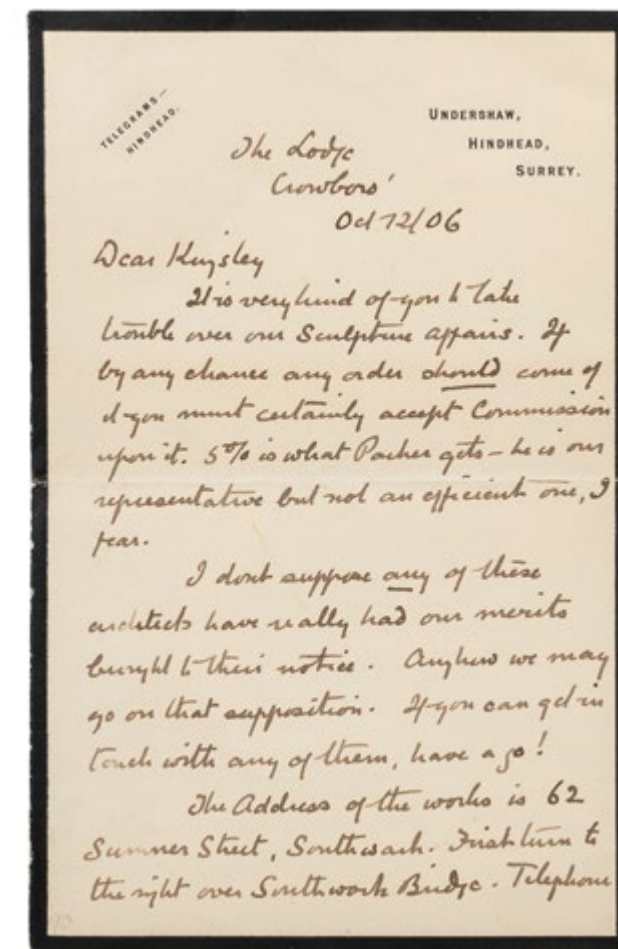 TELEGRAMS—
HINDHEAD.
UNDERSHAW,
HINDHEAD,
SURREY.
The Lodge
Crowboro'
Oct 12/06
Dear Kingsley
It is very kind of you to take
trouble over our Sculpture affairs. If
by any chance any order should come of
it you must certainly accept Commission
upon it. 5% is what Parker gets – he is our
representative but not an efficient one, I
fear.
I dont suppose any of these
architects have really had our merits
brought to their notice. Anyhow we may
go on that supposition. If you can get in
touch with any of them, have a go!
The Address of the works is 62
Sumner Street, Southwark. First turn to
the right over Southwark Bridge. Telephone